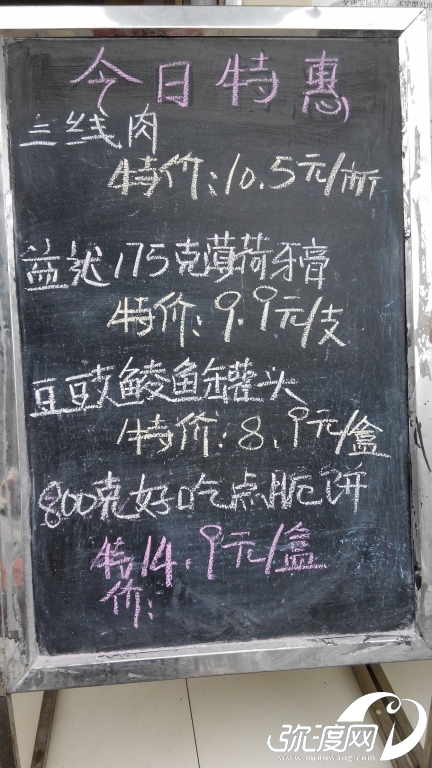 今日特惠
三线肉
特价:10.5元/斤
益然175克薄荷牙膏
特价:9.9元/支
豆豉鲮鱼罐头
特价:8.9元/盒
800克好吃点脆饼
特价:14.9元/盒
弥渡网
www.midowang.com